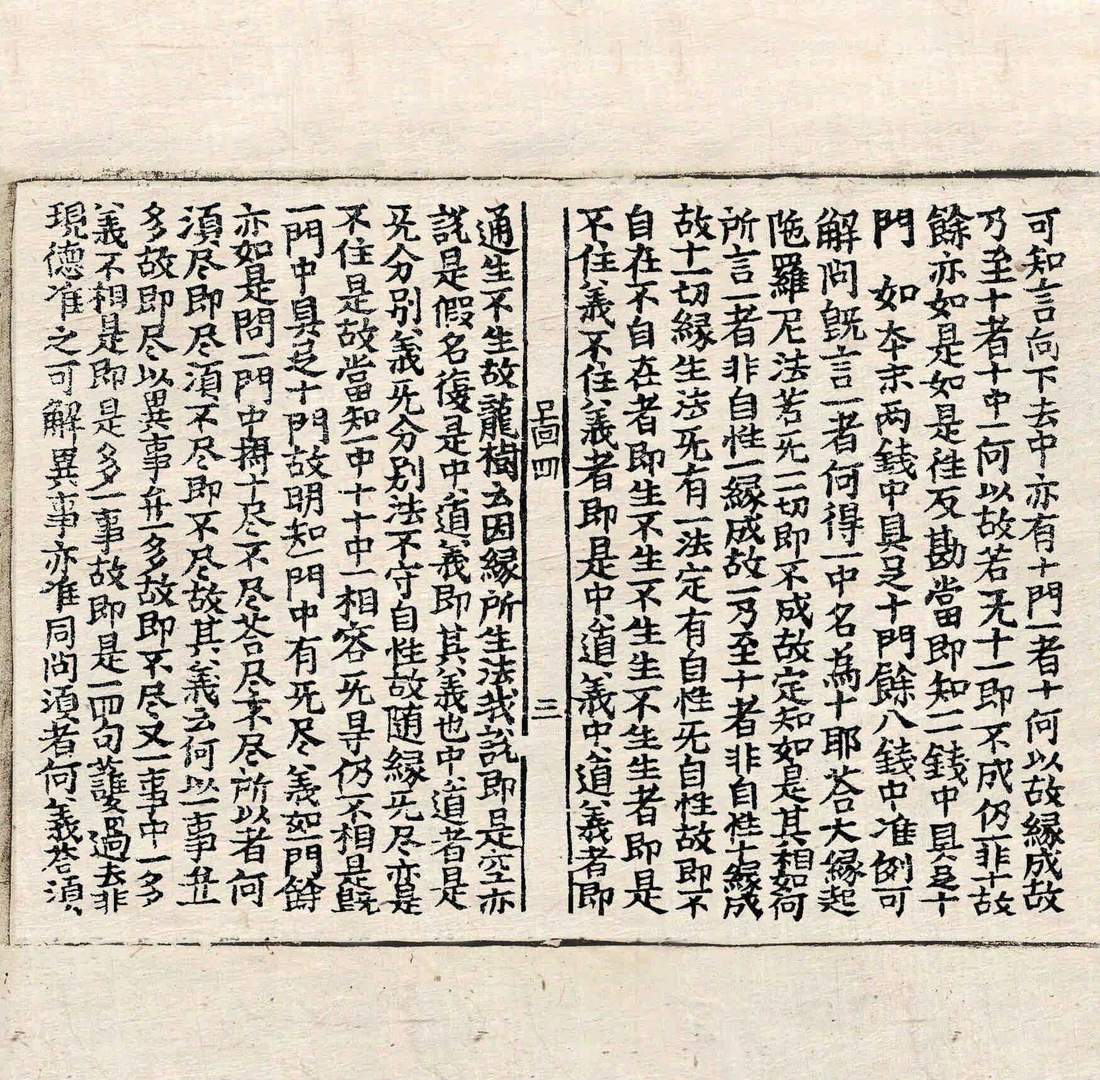 可知言向下去中亦有十門一者十何以故緣成故
乃至十者十中一何以故若无十一即不成仍一非十故
餘亦如是如是徃反勘當即知一一錢中具足十
門　如夲末两錢中具足十門餘八錢中准例可
解問旣言一者何得一中名為十耶荅大緣起
陁羅尼法若无一切即不成故定知如是其相如何
所言一者非自性一緣成故一乃至十者非自性十緣成
故十一切緣生法无有一法定有自性无自性故即不
自在不自在者即生不生不生生不生生者即是
不住義不住義者即是中道義中道義者即
呂啚四　三
通生不生故龍樹云因緣所生法我說即是空亦
說是假名復是中道義即其義也中道者是
无分别義无分别法不守自性故随緣无尽亦是
不住是故當知一中十十中一相容无㝵仍不相是旣
一門中具足十門故明知一門中有无尽義如一門餘
亦如是問一門中攝十尽不尽荅尽不尽所以者何
湏尽即尽湏不尽即不尽故其義云何以一事弁
多故即尽以異事弁一多故即不尽又一事中一多
義不相是即是多一事故即是一四句護過去非
現德准之可解異事亦准同问湏者何義荅湏